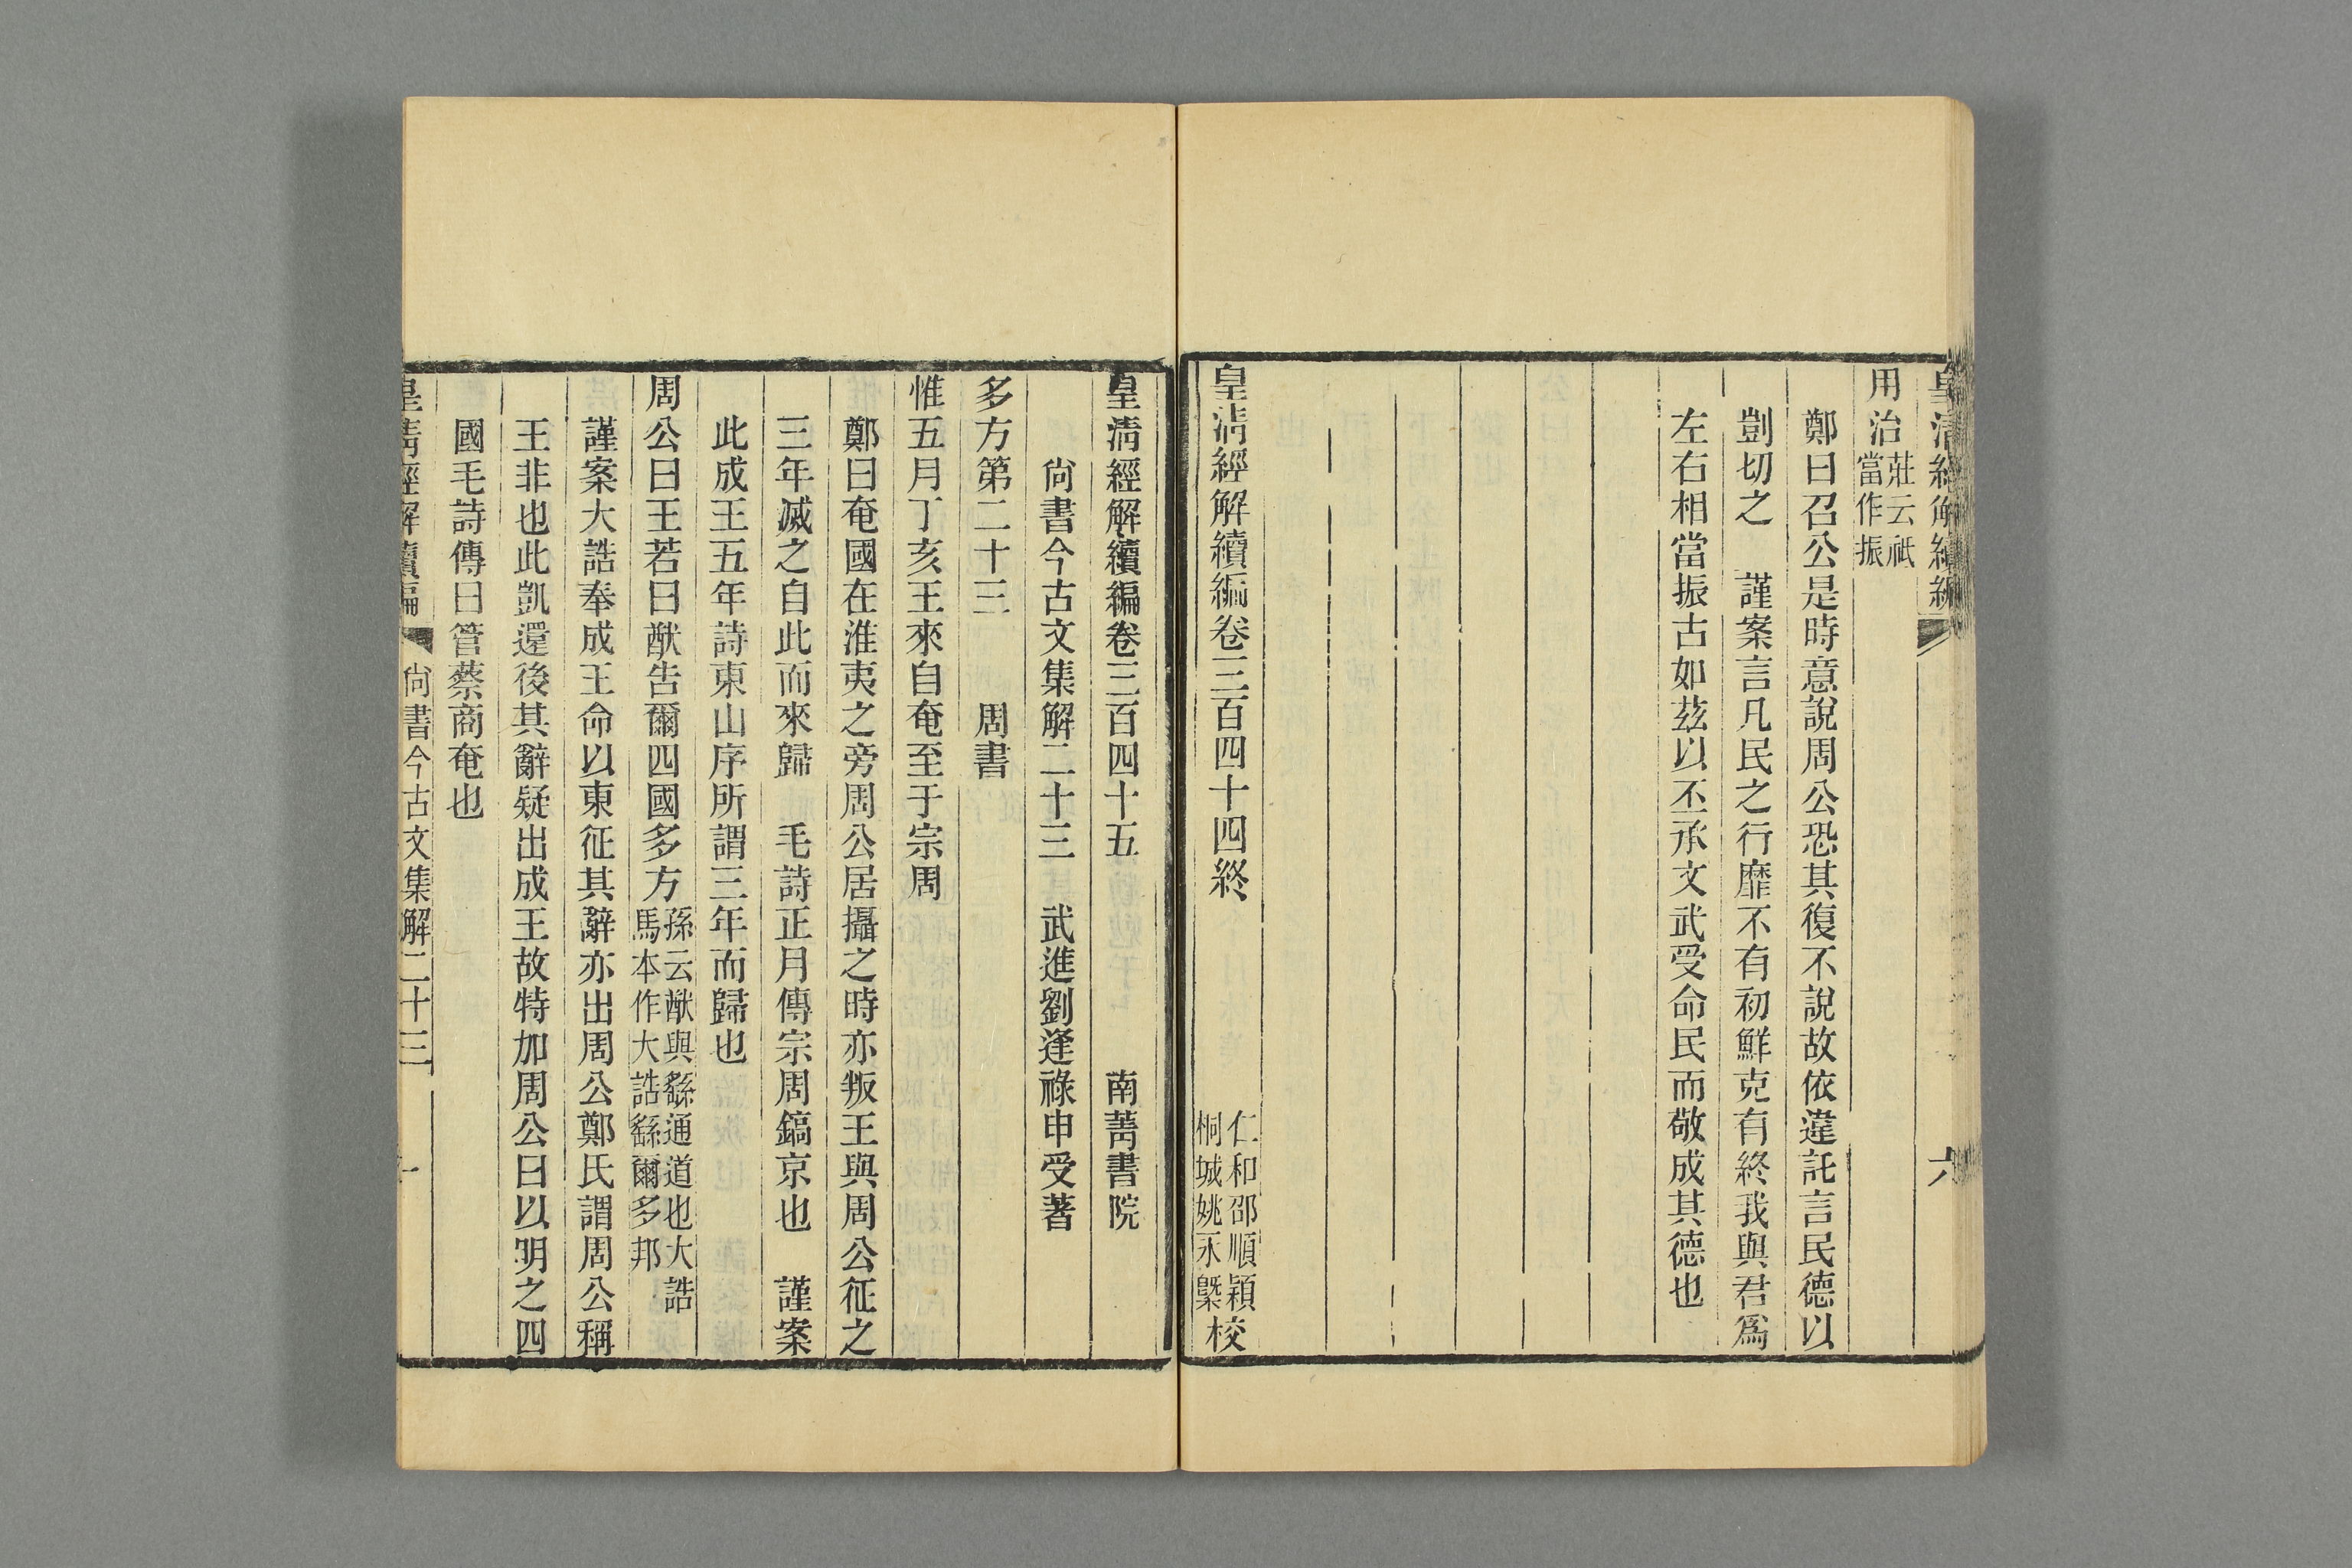 皇清經解續編
六
用治莊云祗
當作振
鄭曰召公是時意說周公恐其復不說故依違託言民德以
剴切之　謹案言凡民之行靡不有初鮮克有終我與君爲
左右相當振古如茲以丕承文武受命民而敬成其德也
皇清經解續編卷三百四十四終
仁和邵順穎
桐城姚永㮣校
皇清經解續編卷三百四十五　南菁書院
尙書今古文集解二十三　武進劉逢祿申受著
多方第二十三　周書
惟五月丁亥王來自奄至于宗周
鄭曰奄國在淮夷之旁周公居攝之時亦叛王與周公征之
三年滅之自此而來歸　毛詩正月傳宗周鎬京也　謹案
此成王五年詩東山序所謂三年而歸也
周公曰王若曰猷告爾四國多方孫云猷與繇通道也大誥
馬本作大誥繇爾多邦
謹案大誥奉成王命以東征其辭亦出周公鄭氏謂周公稱
王非也此凱還後其辭疑出成王故特加周公曰以明之四
國毛詩傳曰管蔡商奄也
皇清經解續編
尙書今古文集解二十三
一